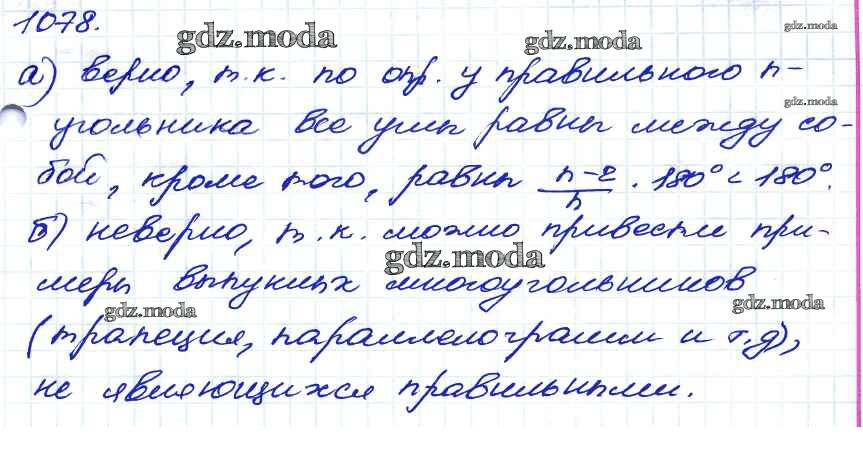 1078.
gdz.moda
gdz.moda
gdz.moda
а) верно, т.к. по опр. у правильного n-
gdz.moda
угольника все углы равны между со-
бой, кроме того, равны (n-2)/n · 180° < 180°.
gdz.moda
б) неверно, т.к. можно привести при-
gdz.moda
меры выпуклых многоугольников
gdz.moda
gdz.moda
(трапеция, параллелограмм и т.д),
не являющихся правильными.